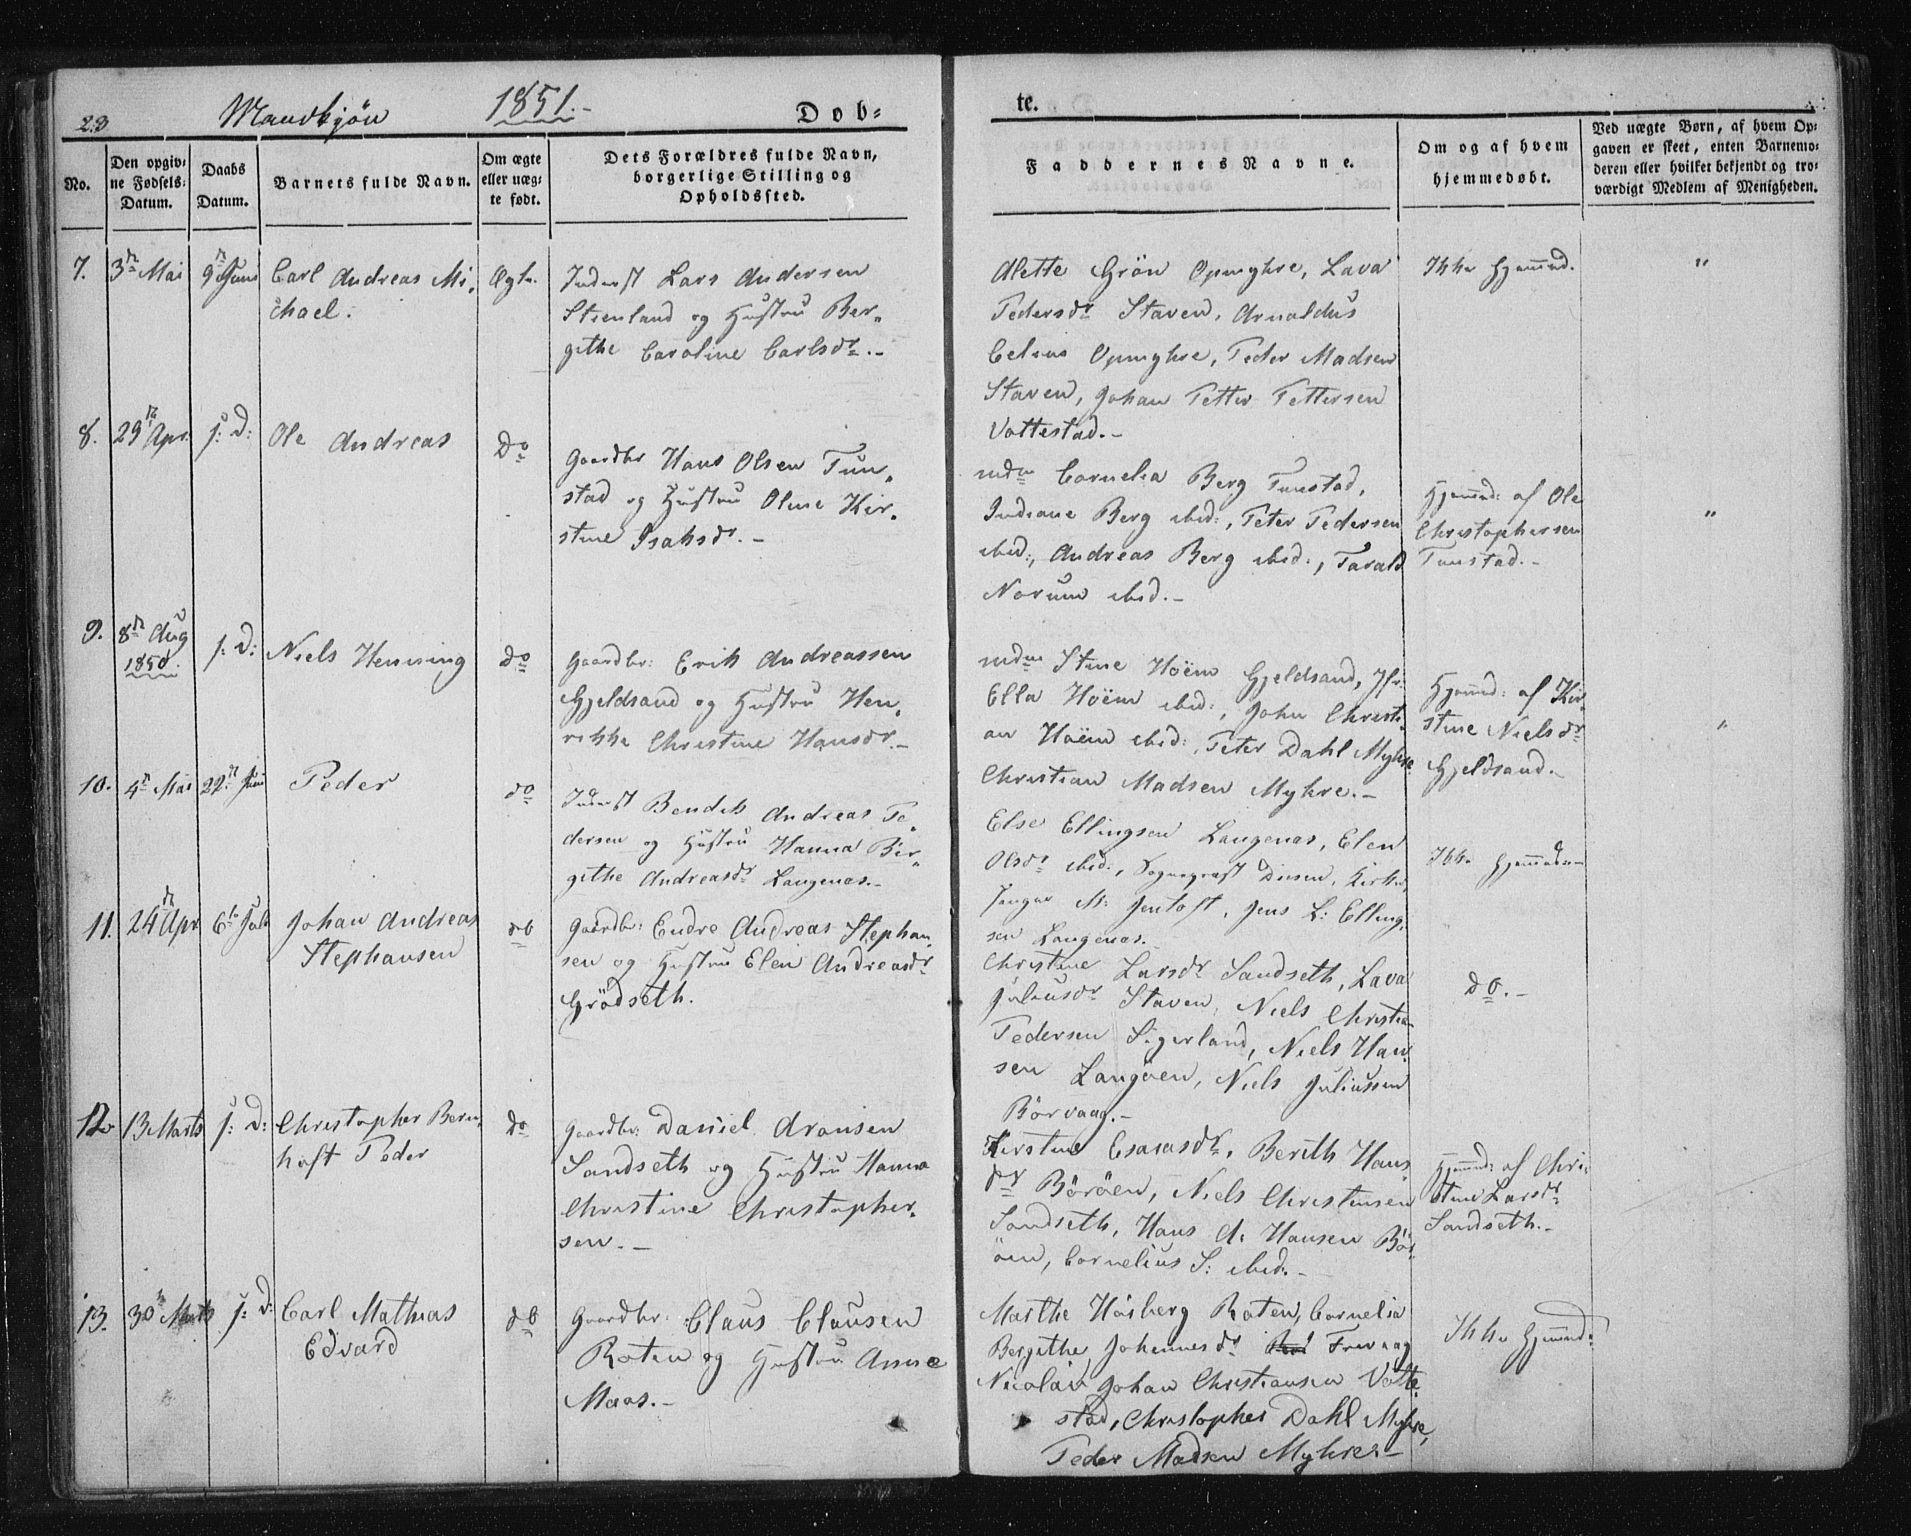 28 Mandkjøn 1851.-
Døb= te.
No.
Den opgiv=
ne Fødsels=
Datum.
Daabs
Datum.
Barnets fulde Navn.
Om ægte
eller uæg=
te født.
Dets Forældres fulde Navn,
borgerlige Stilling og
Opholdssted.
Faddernes Navne.
Om og af hvem
hjemmedøbt.
Ved uægte Børn, af hvem Op=
gaven er skeet, enten Barnemo=
deren eller hvilket bekjendt og tro=
værdigt Medlem af Menigheden.
7. 3dn Mai
9dn Juni
Carl Andreas Mi=
chael.
Ægte.
Inderst Lars Andersen
Steenland og Hustru Ber=
githe Caroline Carlsdr.-
Alette Grön Opmyhre, Lava
Pedersdr Staven, Arnoldus
Celius Opmyhre, Peder Madsen
Staven, Johan Petter Pettersen
Vottestad.-
Ikke Hjemmed.
"
8. 29dn Apr.
s: D:
Ole Andreas
Do
Gaardbr Hans Olsen Tun=
stad og Hustru Oline Kir=
stine Isaksdr.-
mdm Cornelia Berg Tunstad,
Indiane Berg ibid:, Peter Pedersen
ibid:, Andreas Berg ibid:, Tarald
Norum ibid.-
Hjemmd: af Ole
Christophersen
Tunstad.-
"
9. 8dn Aug
1850.
s: D:
Niels Henning
do
Gaardbr: Erik Andreassen
Gjeldsand og Hustru Hen=
rikke Christine Hansdr.-
mdm Stine Höém Gjeldsand, Jfr:
Ella Höém ibid:, John Christi=
an Höém ibid:, Peter Dahl Myhre
Christian Madsen Myhre.-
Hjemmd: af Kir=
stine Nielsdr
Gjeldsand.-
"
10. 4dn Mai
22dn Juni
Peder
do
Inderst Bendik Andreas Pe=
dersen og Hustru Hanna Bir=
githe Andreasdr Langenes.-
Else Ellingsen Langenes, Elen
Olsdr ibid:, Sognepræst Diesen, Kirke=
sanger M: Jentoft, Jens L: Elling=
sen Langenes.-
Ikke Hjemmed.-
11. 24dn Apr
6te Juli
Johan Andreas
Stephansen
do
Gaardbr: Endre Andreas Stephan=
sen og Hustru Elen Andreasdr
Grödseth.
Christine Larsdr Sandseth, Lava
Juliusdr Staven, Niels Christian
Pedersen Sigerland, Niels Han=
sen Langöen, Niels Juliussen
Börvaag.-
do.-
12. 13 Marts
s: D:
Christopher Bern=
hoft Peder
Do
Gaardbr: Daniel Aronsen
Sandseth og Hustru Hanna
Christine Christopher=
sen.-
Kirstine Esaiasdr, Berith Hans
dr Böröen, Niels Christensen
Sandseth, Hans A: Hansen Bör=
öen, Cornelius S: ibid.-
Hjemmd: af Chri=
stine Larsdr
Sandseth.-
13. 30 Marts
s: D:
Carl Mathias
Edvard
do
Gaardbr: Claus Clausen
Roten og Hustru Anne
Maas.-
Marthe Häsberg Roten, Cornelia
Bergithe Johannesdr Frevaag
Nicolai Johan Christiansen Votte=
stad, Christopher Dahl Myhre,
Peder Madsen Myhre.-
Ikke Hjemmd: